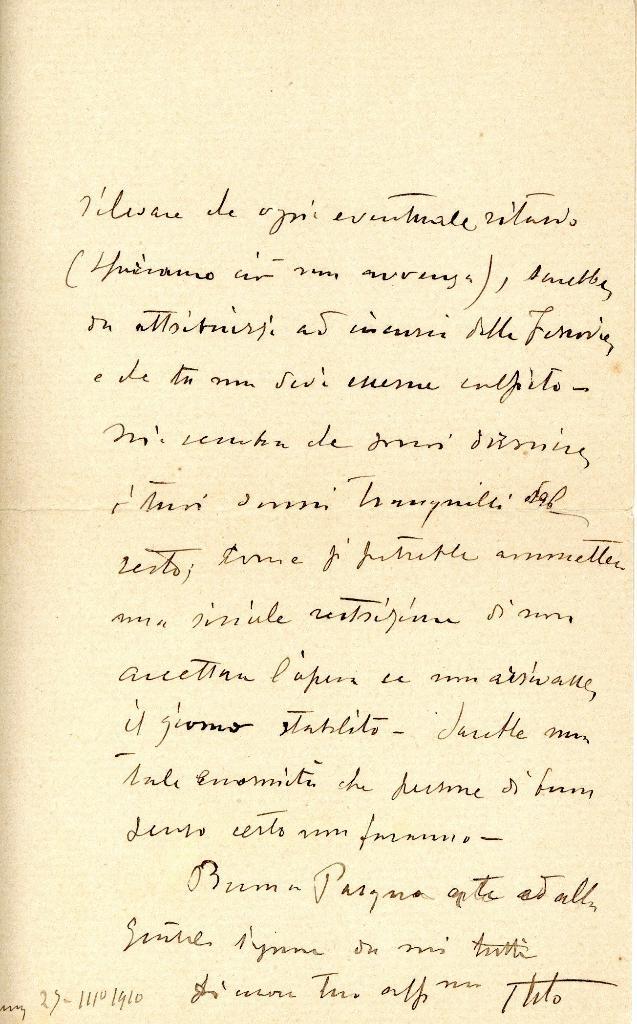 rilevare che ogni eventuale ritardo
(speriamo ciò non avvenga), sarebbe
da attribuirsi ad incuria delle Ferrovie,
e che tu non devi esserne colpito -
Mi sembra che puoi dormire
i tuoi sonni tranquilli del
resto; come si potrebbe ammettere
una simile restrizione di non
accettare l'opera se non arrivasse
il giorno stabilito - Sarebbe una
tale enormità che persone di buon
senso certo non faranno -
Buona Pasqua a te ed alla
gentile signora da noi tutti
di cuore tuo aff mo Tito
27 - III° 1910